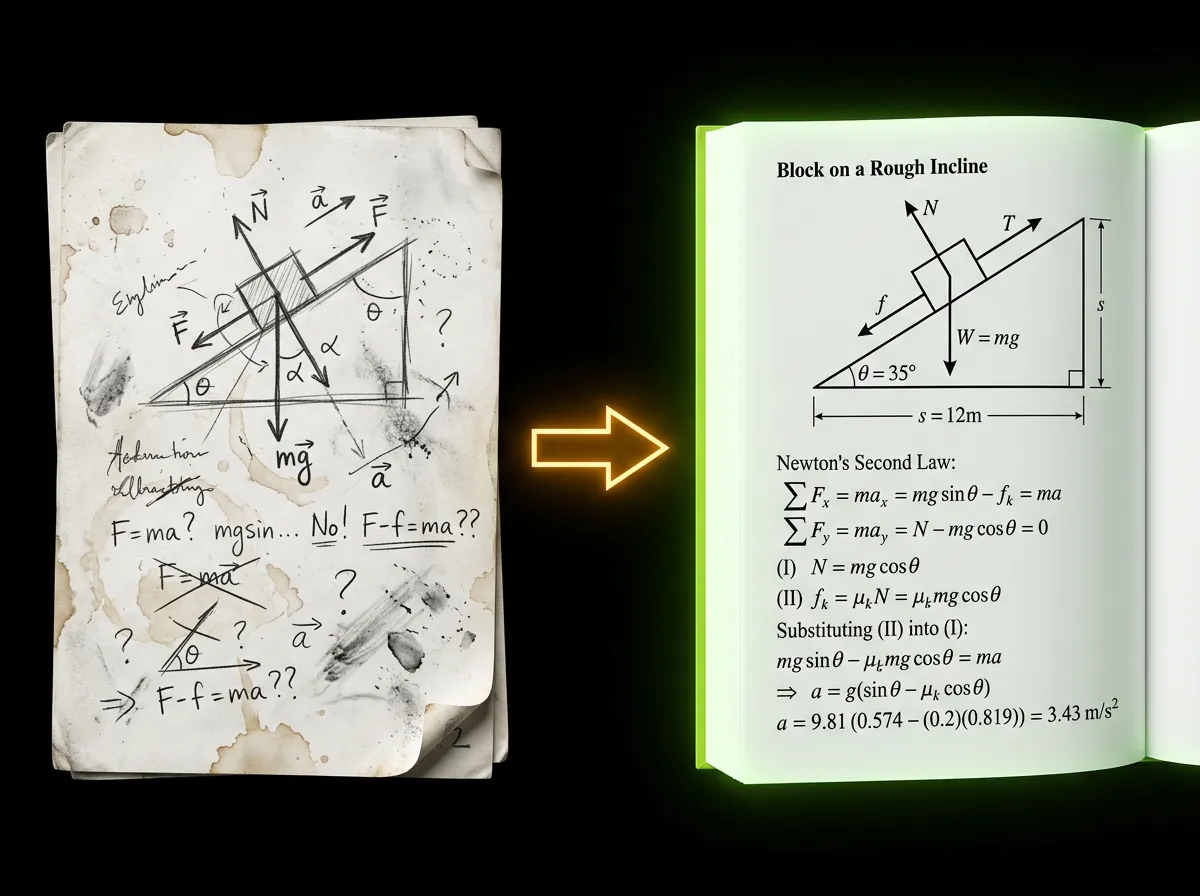 N
a
F
F
θ
?
α
α
θ
mg
a
F=ma? mgsin... No! F-f=ma??
F=ma
?
? θ ? a
⇒ F-f=ma??
2
Block on a Rough Incline
N
T
f
s
W = mg
θ = 35°
s = 12m
Newton's Second Law:
∑ Fx = max = mg sinθ − fk = ma
∑ Fy = may = N − mg cosθ = 0
(I) N = mg cosθ
(II) fk = μkN = μkmg cosθ
Substituting (II) into (I):
mg sinθ − μkmg cosθ = ma
⇒ a = g(sinθ − μk cosθ)
a = 9.81 (0.574 − (0.2)(0.819)) = 3.43 m/s²